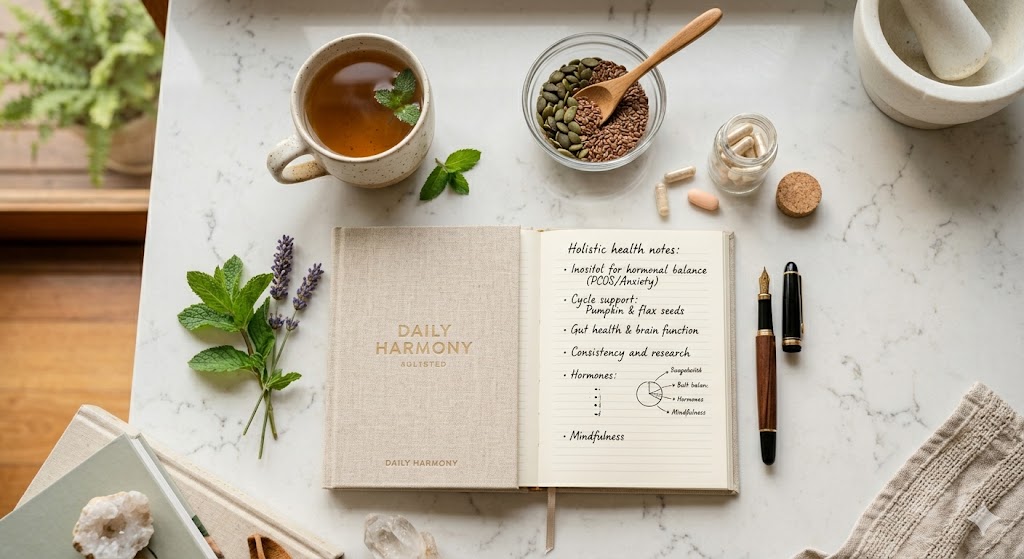 DAILY
HARMONY
DAILY HARMONY
Holistic health notes:
• Inositol for hormonal balance
(PCOS/Anxiety)
• Cycle support:
Pumpkin & flax seeds
• Gut health & brain function
• Consistency and research
• Hormones:
Hormones
Mindfulness
• Mindfulness